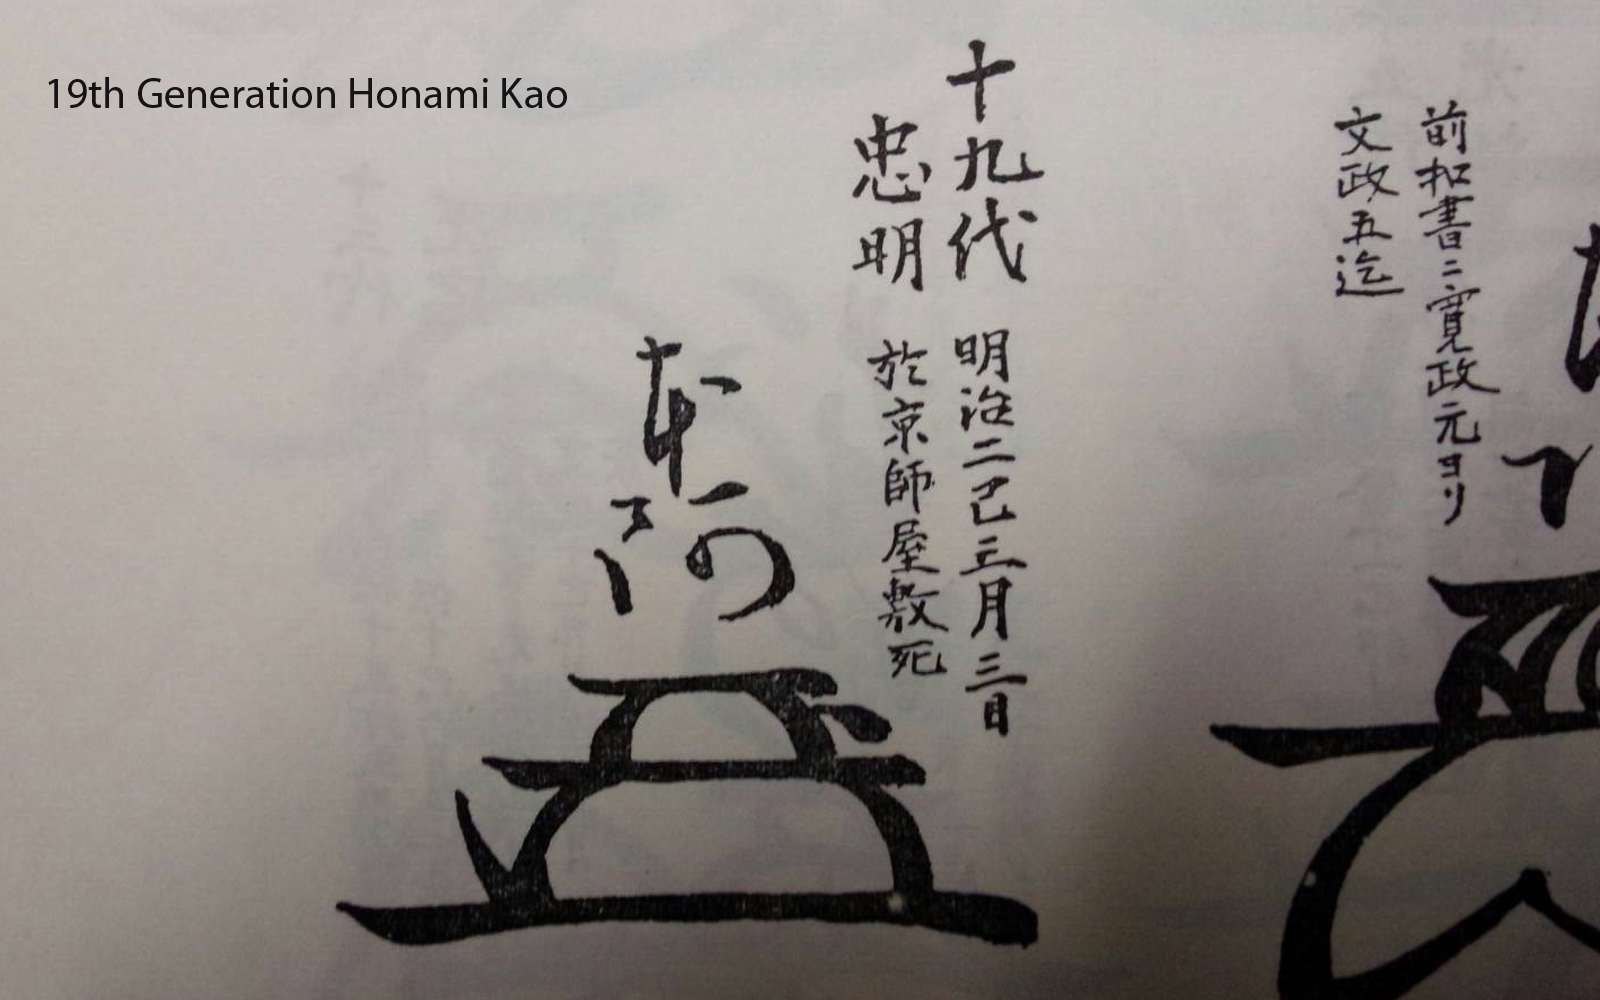 19th Generation Honami Kao
前扣書ニ寛政元ヨリ
文政五迄
十九代
忠明
明治二己巳三月三日
於京師屋敷死
本阿